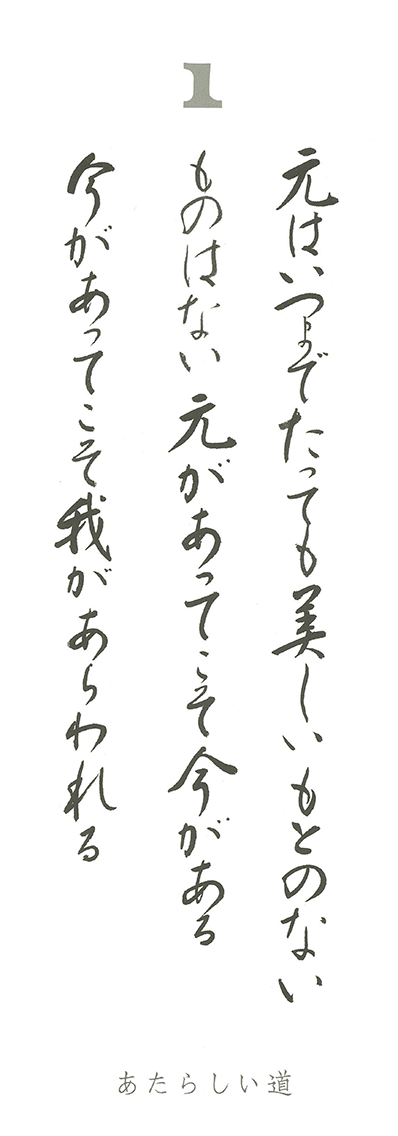 1
元はいつまでたっても美しいもとのない
ものはない元があってこそ今がある
今があってこそ我があらわれる
あたらしい道